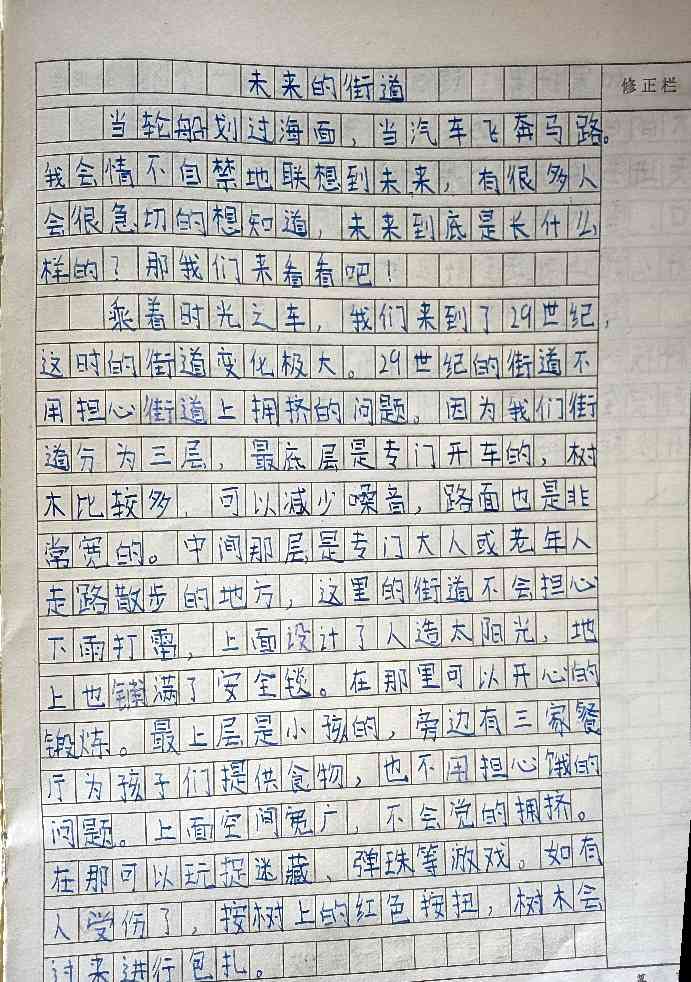 未来的街道
修正栏
当轮船划过海面，当汽车飞奔马路。
我会情不自禁地联想到未来，有很多人
会很急切的想知道，未来到底是长什么
样的？那我们来看看吧！
乘着时光之车，我们来到了29世纪，
这时的街道变化极大。29世纪的街道不
用担心街道上拥挤的问题。因为我们街
道分为三层，最底层是专门开车的，树
木比较多，可以减少噪音，路面也是非
常宽的。中间那层是专门大人或老年人
走路散步的地方，这里的街道不会担心
下雨打雷，上面设计了人造太阳光，地
上也铺满了安全锁。在那里可以开心的
锻炼。最上层是小孩的，旁边有三家餐
厅为孩子们提供食物，也不用担心饿的
问题。上面空间宽广，不会党的拥挤。
在那可以玩捉迷藏、弹珠等游戏。如有
人受伤了，按树上的红色按扭，树木会
过来进行包扎。